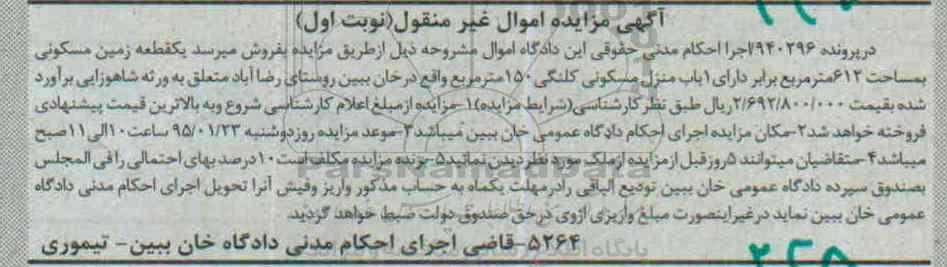 آگهی مزایده اموال غیر منقول(نوبت اول)
درپرونده ۹۴۰۲۹۶/اجرا احکام مدنی حقوقی این دادگاه اموال مشروحه ذیل ازطریق مزایده بفروش میرسد یکقطعه زمین مسکونی
بمساحت ۶۱۲مترمربع برابر دارای ۱باب منزل مسکونی کلنگی ۱۵۰مترمربع واقع درخان ببین روستای رضا آباد متعلق به ورثه شاهوزایی برآورد
شده بقیمت ۲/۶۹۲/۸۰۰/۰۰۰ریال طبق نظر کارشناسی(شرایط مزایده)۱-مزایده ازمبلغ اعلام کارشناسی شروع وبه بالاترین قیمت پیشنهادی
فروخته خواهد شد۲-مکان مزایده اجرای احکام دادگاه عمومی خان ببین میباشد۳-موعد مزایده روزدوشنبه ۹۵/۰۱/۲۳ ساعت ۱۰الی۱۱صبح
میباشد۴-متقاضیان میتوانند ۵روز قبل ازمزایده ازملک مورد نظر دیدن نمائید۵-برنده مزایده مکلف است ۱۰درصد بهای احتمالی رافی المجلس
بصندوق سپرده دادگاه عمومی خان ببین تودیع الباقی رادرمهلت یکماه به حساب مذکور واریز وفیش آنرا تحویل اجرای احکام مدنی دادگاه
عمومی خان ببین نماید درغیراینصورت مبلغ واریزی ازوی درحق صندوق دولت ضبط خواهد گردید.
۵۲۶۴-قاضی اجرای احکام مدنی دادگاه خان ببین- تیموری
ParsNamadData